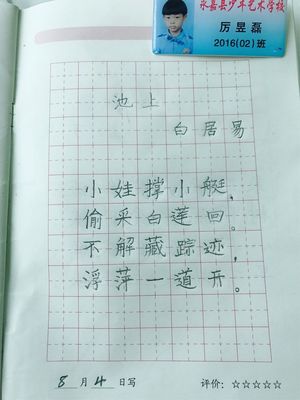 永嘉县少年艺术学校
厉昱磊
2016(02)班
池上
白居易
小娃撑小艇,
偷采白莲回。
不解藏踪迹,
浮萍一道开。
8月4日写
评价:☆☆☆☆☆